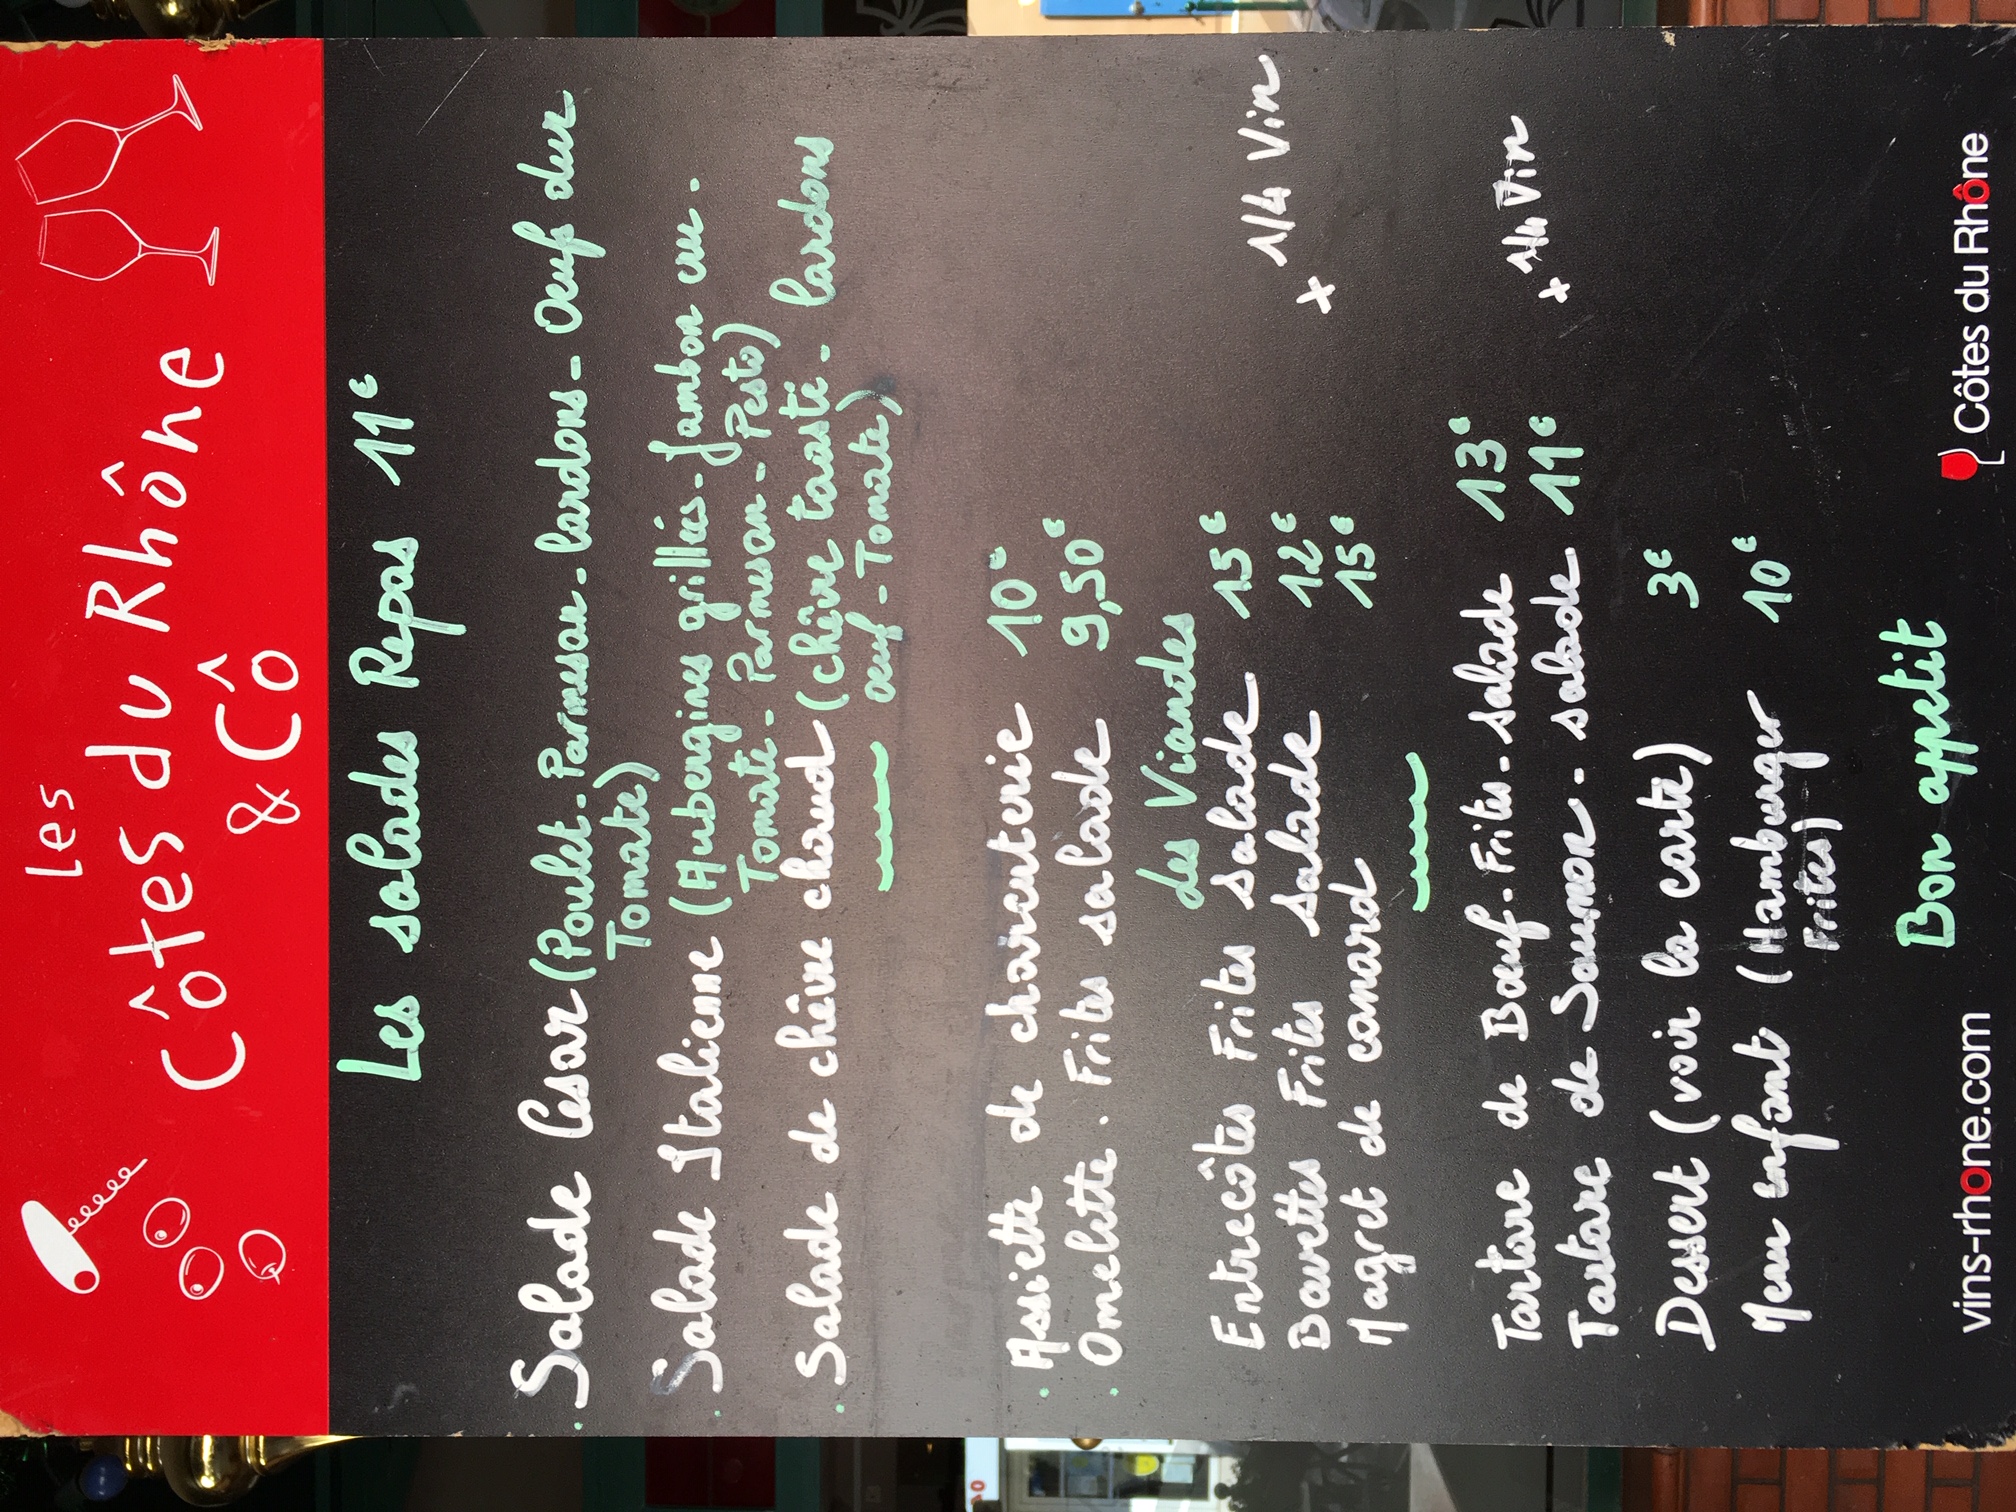 Les
Côtes du Rhône
& Cô
Les salades Repas 11€
. Salade Cesar (Poulet - Parmesan - lardons - Oeuf dur
Tomate)
. Salade Italienne (Aubergines grillées - Jambon cru -
Tomate - Parmesan - Pesto)
. Salade de chêvre chaud (chêvre toasté - lardons
oeuf - Tomate)
. Assiette de charcuterie 10€
. Omelette . Frites salade 9,50€
des Viandes
Entrecôtes Frites Salade 15€
Bavettes Frites Salade 12€ + 1/4 Vin
Magret de canard 15€
Tartare de Bœuf . Frites - salade 13€
Tartare de Saumon - salade 11€ + 1/4 Vin
Dessert (voir la carte) 3€
Menu enfant (Hamburger 10€
Frites)
Bon appetit
vins-rhone.com Côtes du Rhône